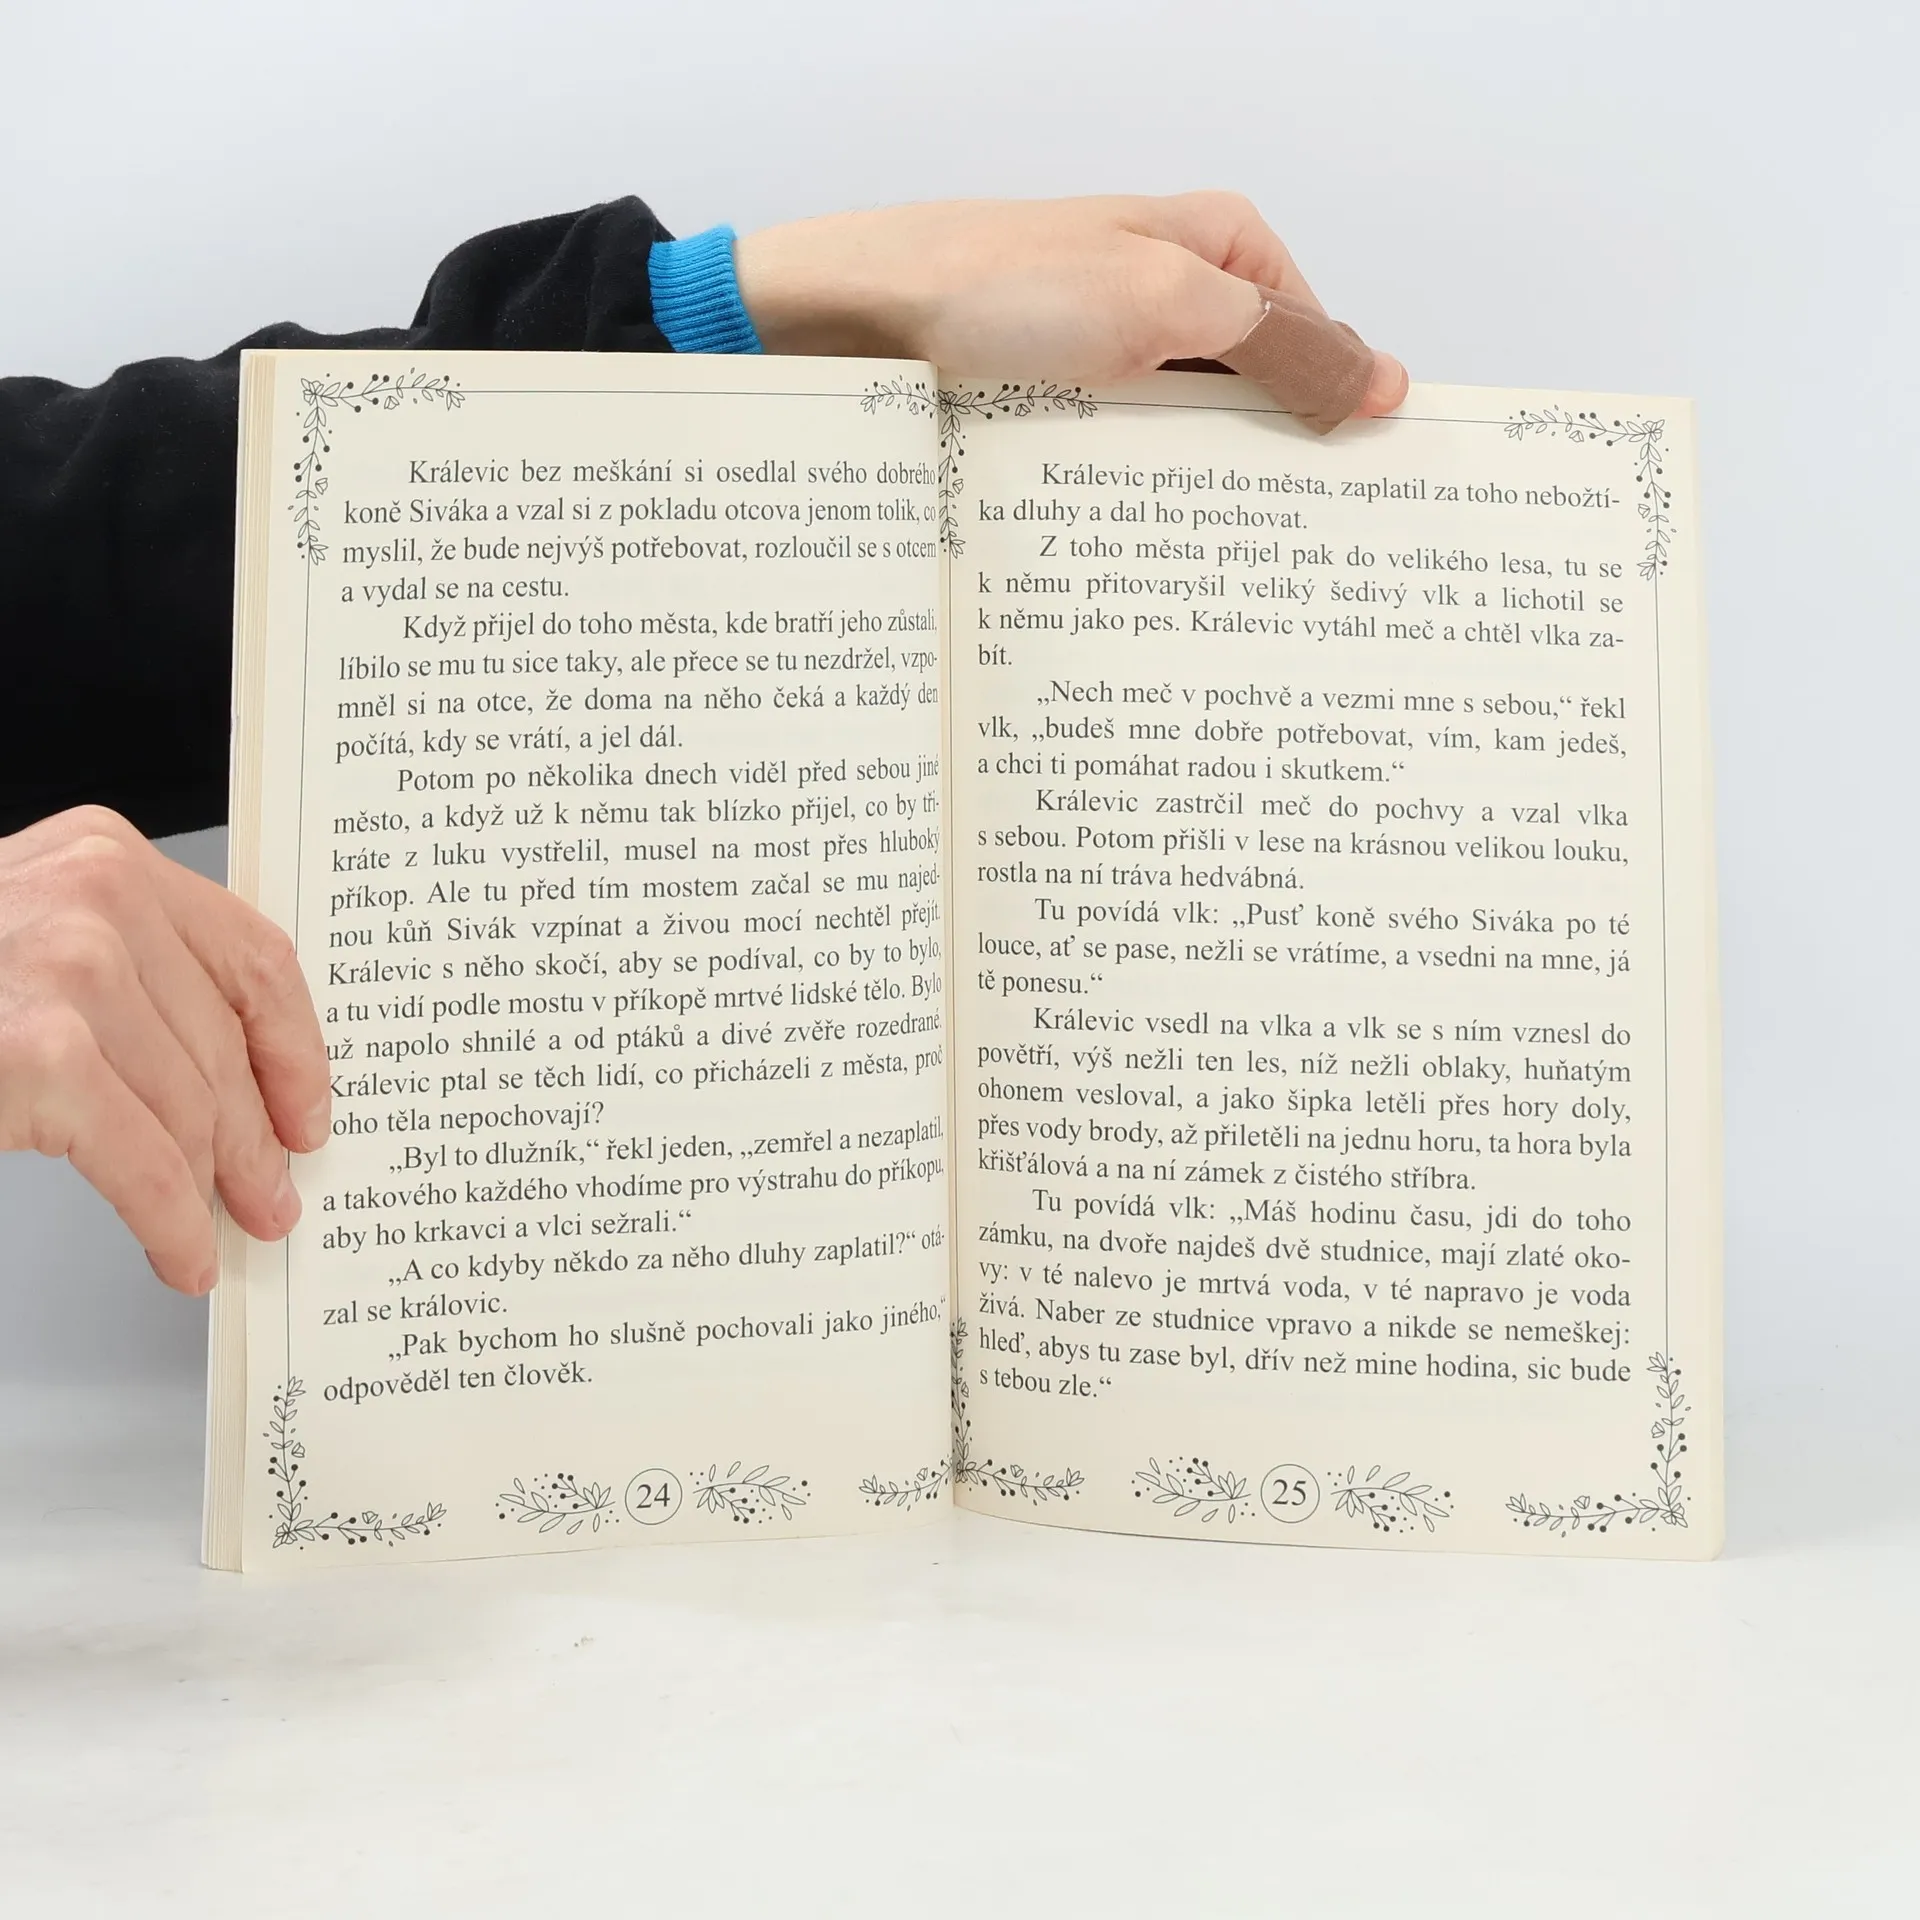 Králevic bez meškání si osedlal svého dobrého
koně Siváka a vzal si z pokladu otcova jenom tolik, co
myslil, že bude nejvýš potřebovat, rozloučil se s otcem
a vydal se na cestu.
Když přijel do toho města, kde bratří jeho zůstali,
líbilo se mu tu sice taky, ale přece se tu nezdržel, vzpo-
mněl si na otce, že doma na něho čeká a každý den
počítá, kdy se vrátí, a jel dál.
Potom po několika dnech viděl před sebou jiné
město, a když už k němu tak blízko přijel, co by tři-
kráte z luku vystřelil, musel na most přes hluboký
příkop. Ale tu před tím mostem začal se mu najed-
nou kůň Sivák vzpínat a živou mocí nechtěl přejít.
Králevic s něho skočí, aby se podíval, co by to bylo,
a tu vidí podle mostu v příkopě mrtvé lidské tělo. Bylo
už napolo shnilé a od ptáků a divé zvěře rozedrané.
Králevic ptal se těch lidí, co přicházeli z města, proč
oho těla nepochovají?
„Byl to dlužník,“ řekl jeden, „zemřel a nezaplatil,
a takového každého vhodíme pro výstrahu do příkopu,
aby ho krkavci a vlci sežrali.“
„A co kdyby někdo za něho dluhy zaplatil?“ otá-
zal se královic.
„Pak bychom ho slušně pochovali jako jiného,“
odpověděl ten člověk.
24
Králevic přijel do města, zaplatil za toho nebožtí-
ka dluhy a dal ho pochovat.
Z toho města přijel pak do velikého lesa, tu se
k němu přitovaryšil veliký šedivý vlk a lichotil se
k němu jako pes. Králevic vytáhl meč a chtěl vlka za-
bít.
„Nech meč v pochvě a vezmi mne s sebou,“ řekl
vlk, „budeš mne dobře potřebovat, vím, kam jedeš,
a chci ti pomáhat radou i skutkem.“
Králevic zastrčil meč do pochvy a vzal vlka
s sebou. Potom přišli v lese na krásnou velikou louku,
rostla na ní tráva hedvábná.
Tu povídá vlk: „Pusť koně svého Siváka po té
louce, ať se pase, nežli se vrátíme, a vsedni na mne, já
tě ponesu.“
Králevic vsedl na vlka a vlk se s ním vznesl do
povětří, výš nežli ten les, níž nežli oblaky, huňatým
ohonem vesloval, a jako šipka letěli přes hory doly,
přes vody brody, až přiletěli na jednu horu, ta hora byla
křišťálová a na ní zámek z čistého stříbra.
Tu povídá vlk: „Máš hodinu času, jdi do toho
zámku, na dvoře najdeš dvě studnice, mají zlaté oko-
vy: v té nalevo je mrtvá voda, v té napravo je voda
živá. Naber ze studnice vpravo a nikde se nemeškej:
hleď, abys tu zase byl, dřív než mine hodina, sic bude
s tebou zle.“
25